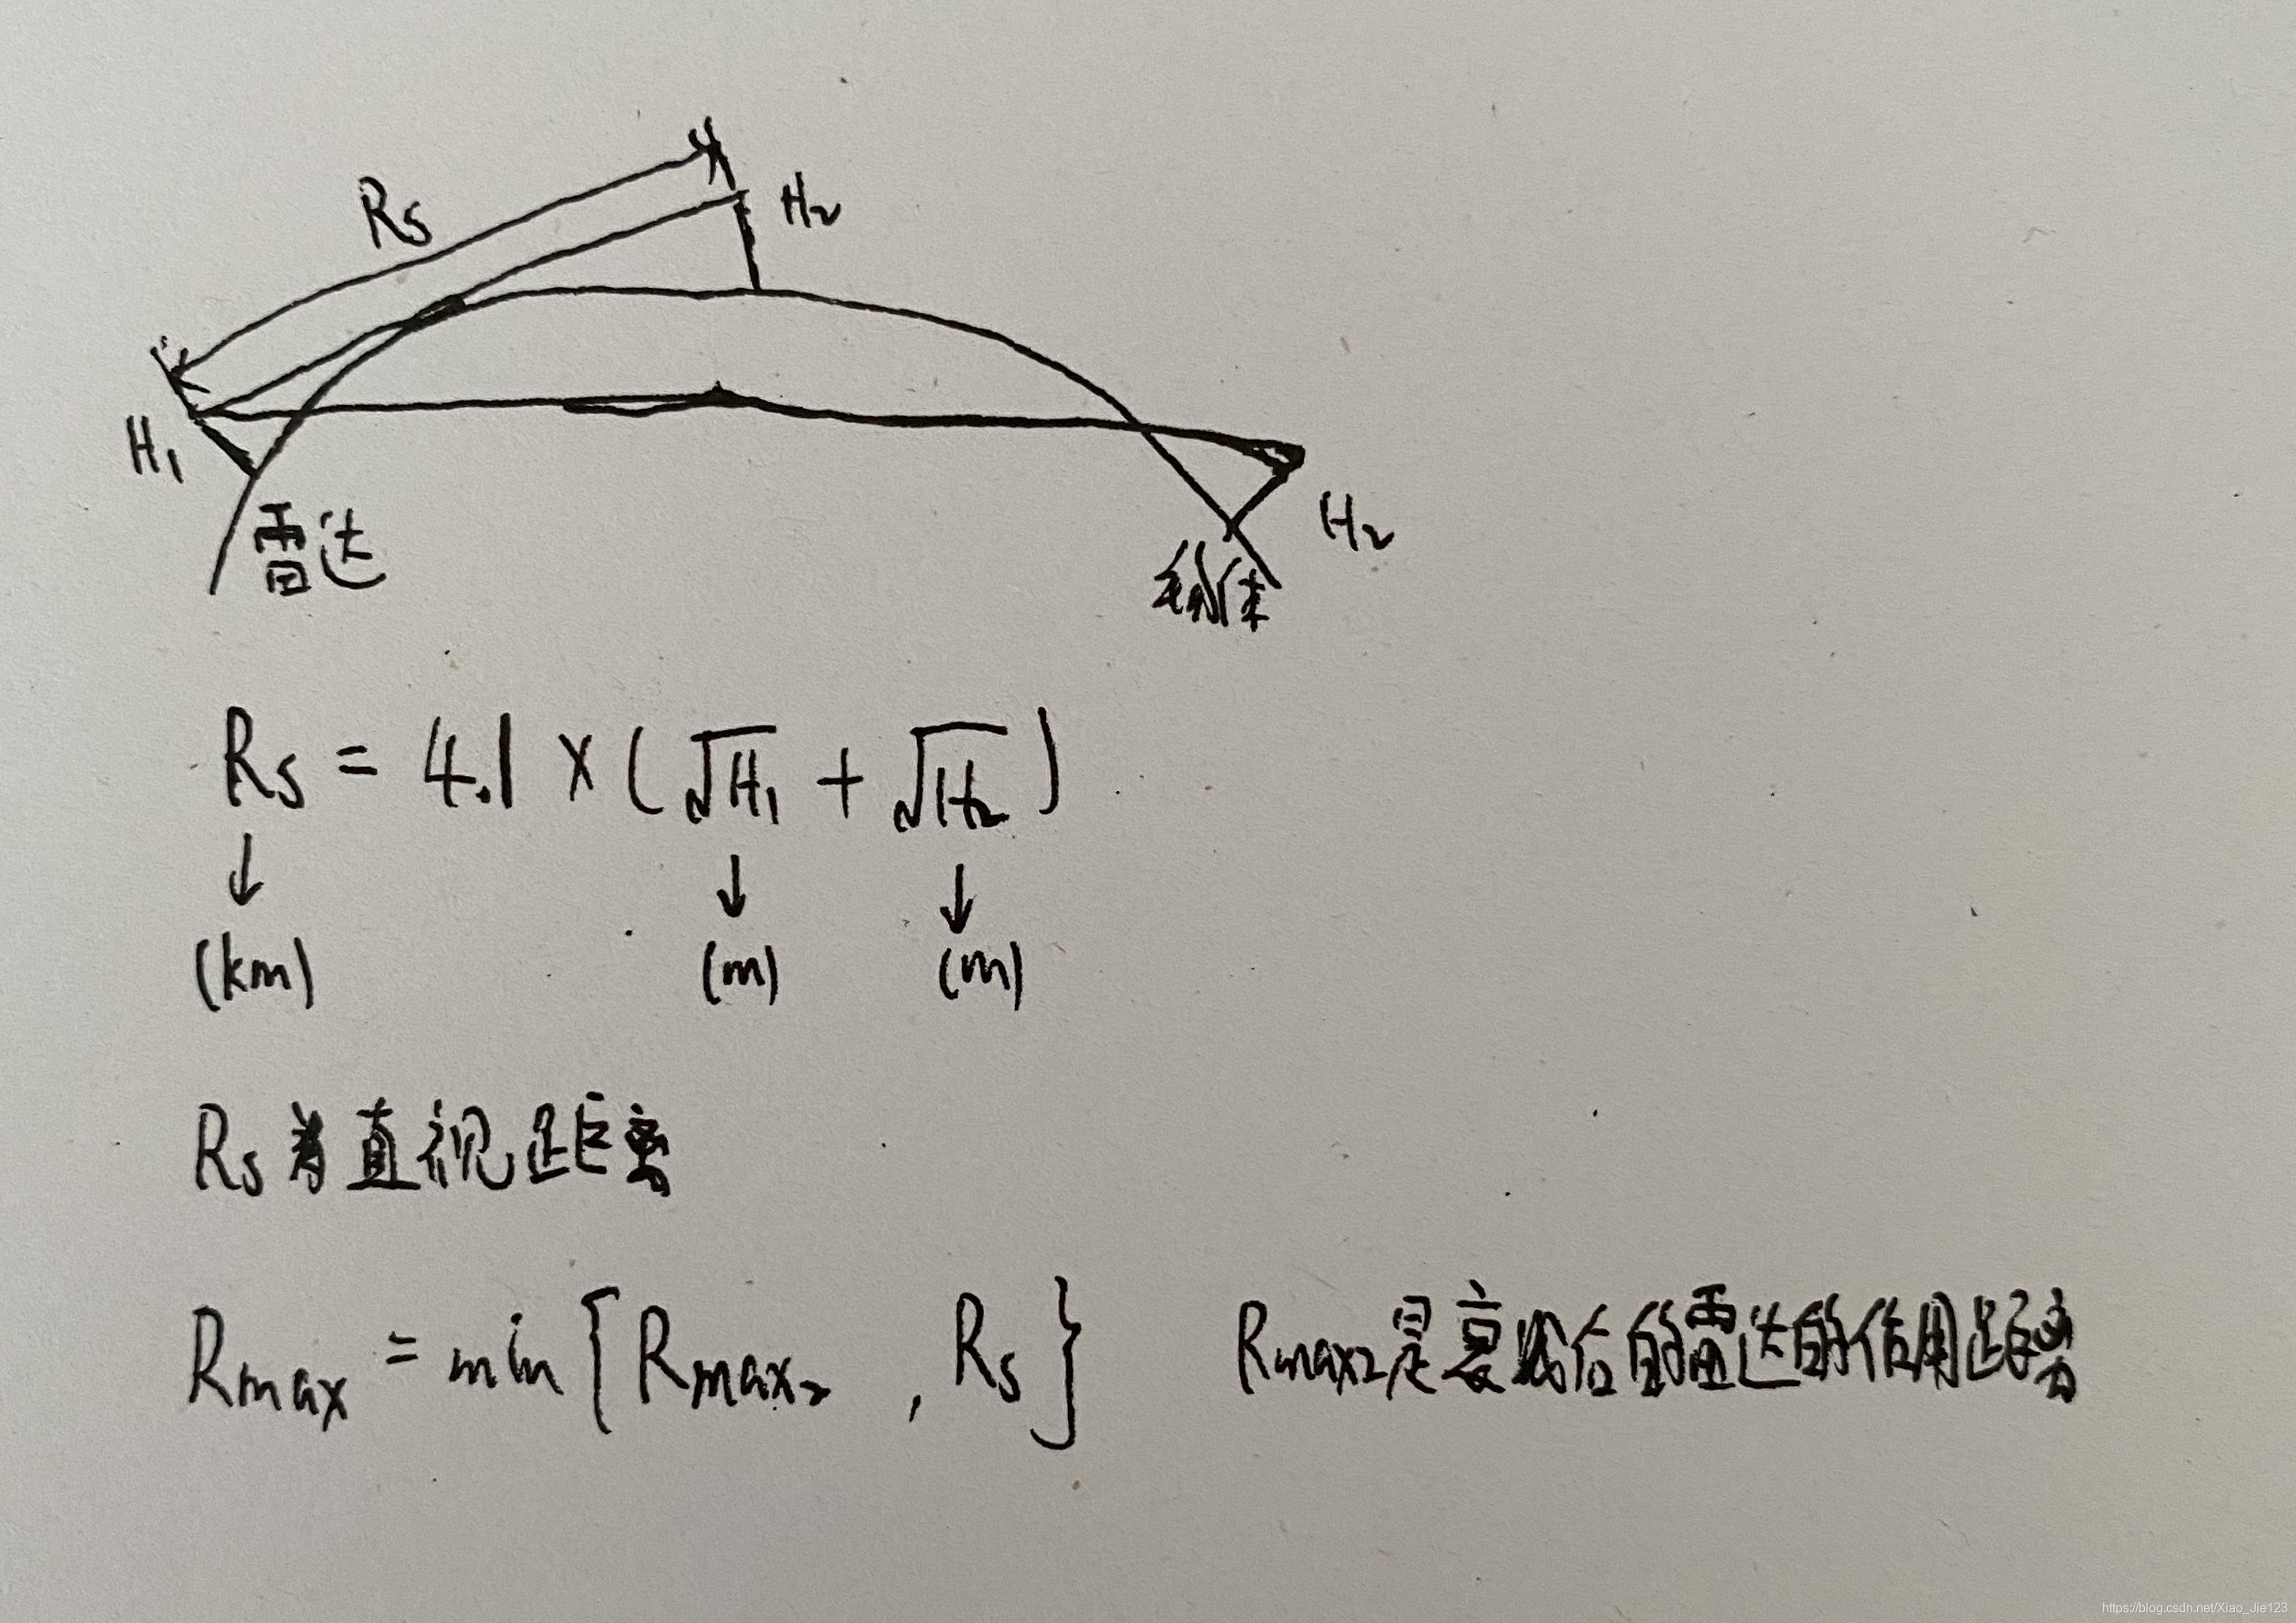 Rs
H₂
H₁
雷达
H₂
Rs = 4.1 × (√H₁ + √H₂)
↓ ↓ ↓
(km) (m) (m)
Rs为直视距离
Rmax = min{Rmax₂, Rs} Rmax2是衰减后的雷达的作用距离
https://blog.csdn.net/Xiao_Jie123